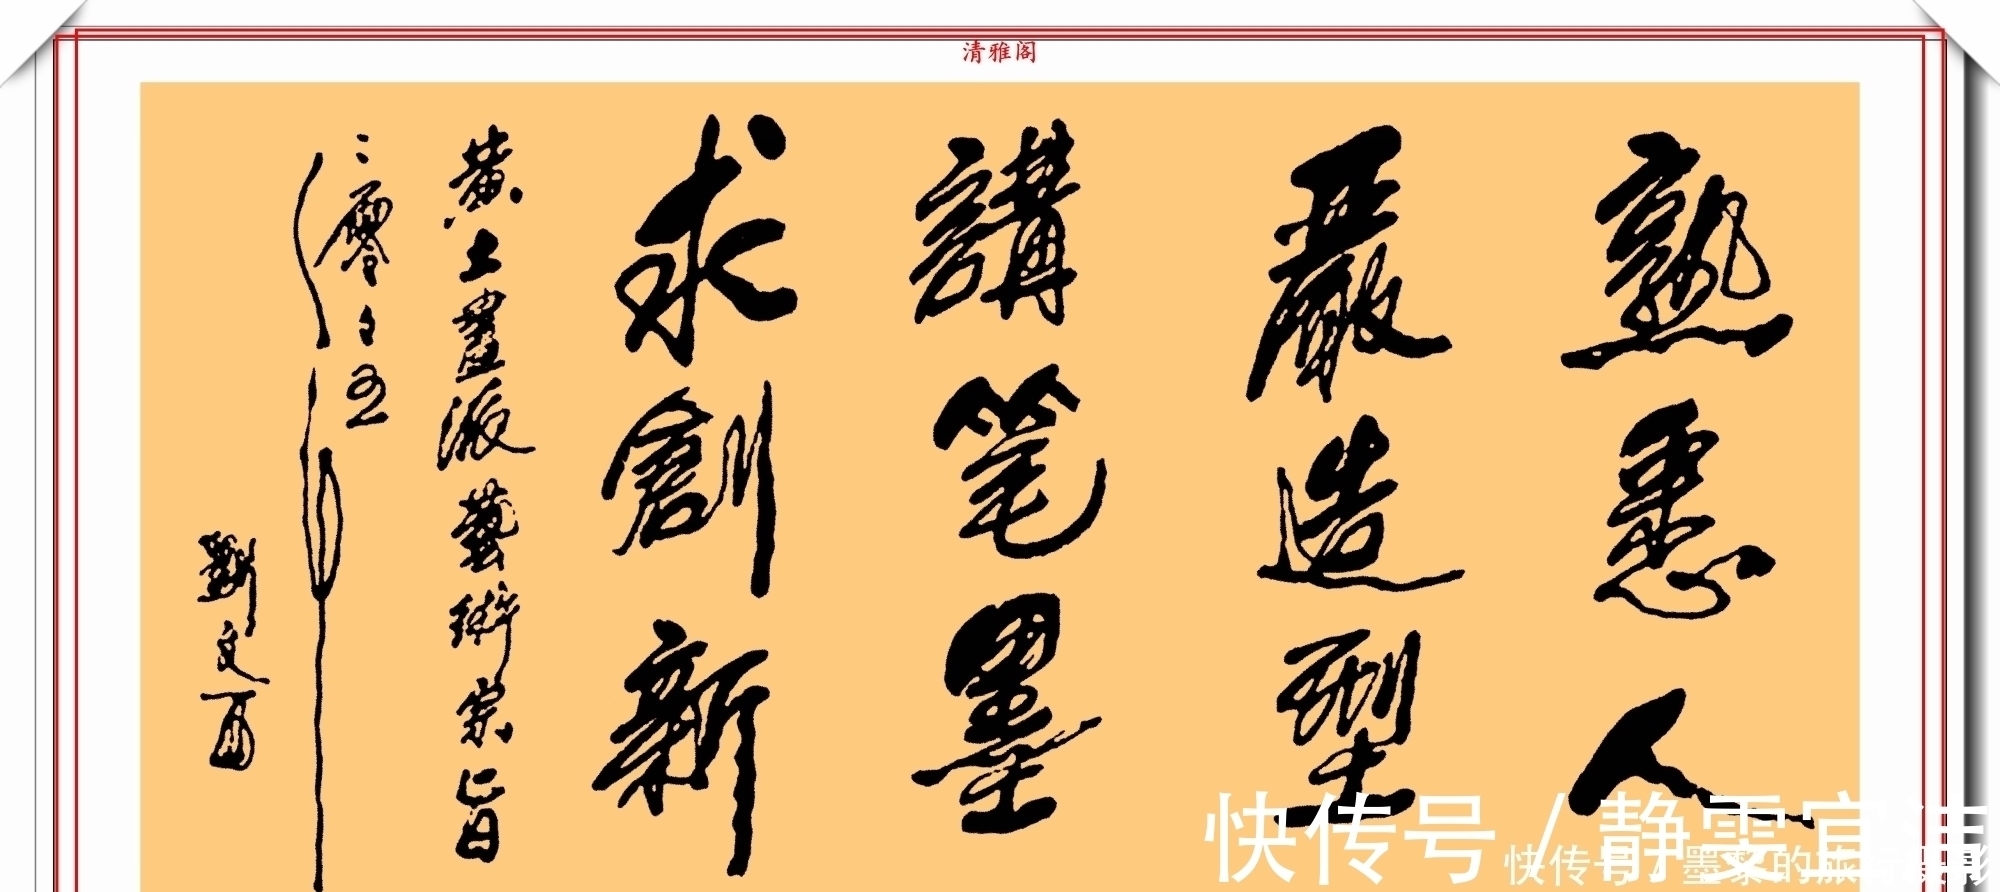 清雅阁
熟悉人
嚴造型
講笔墨
求創新
黄土畫派藝術宗旨
二零
劉文西
快传号/静雯宜清
快传号/墨黎的旅与摄影